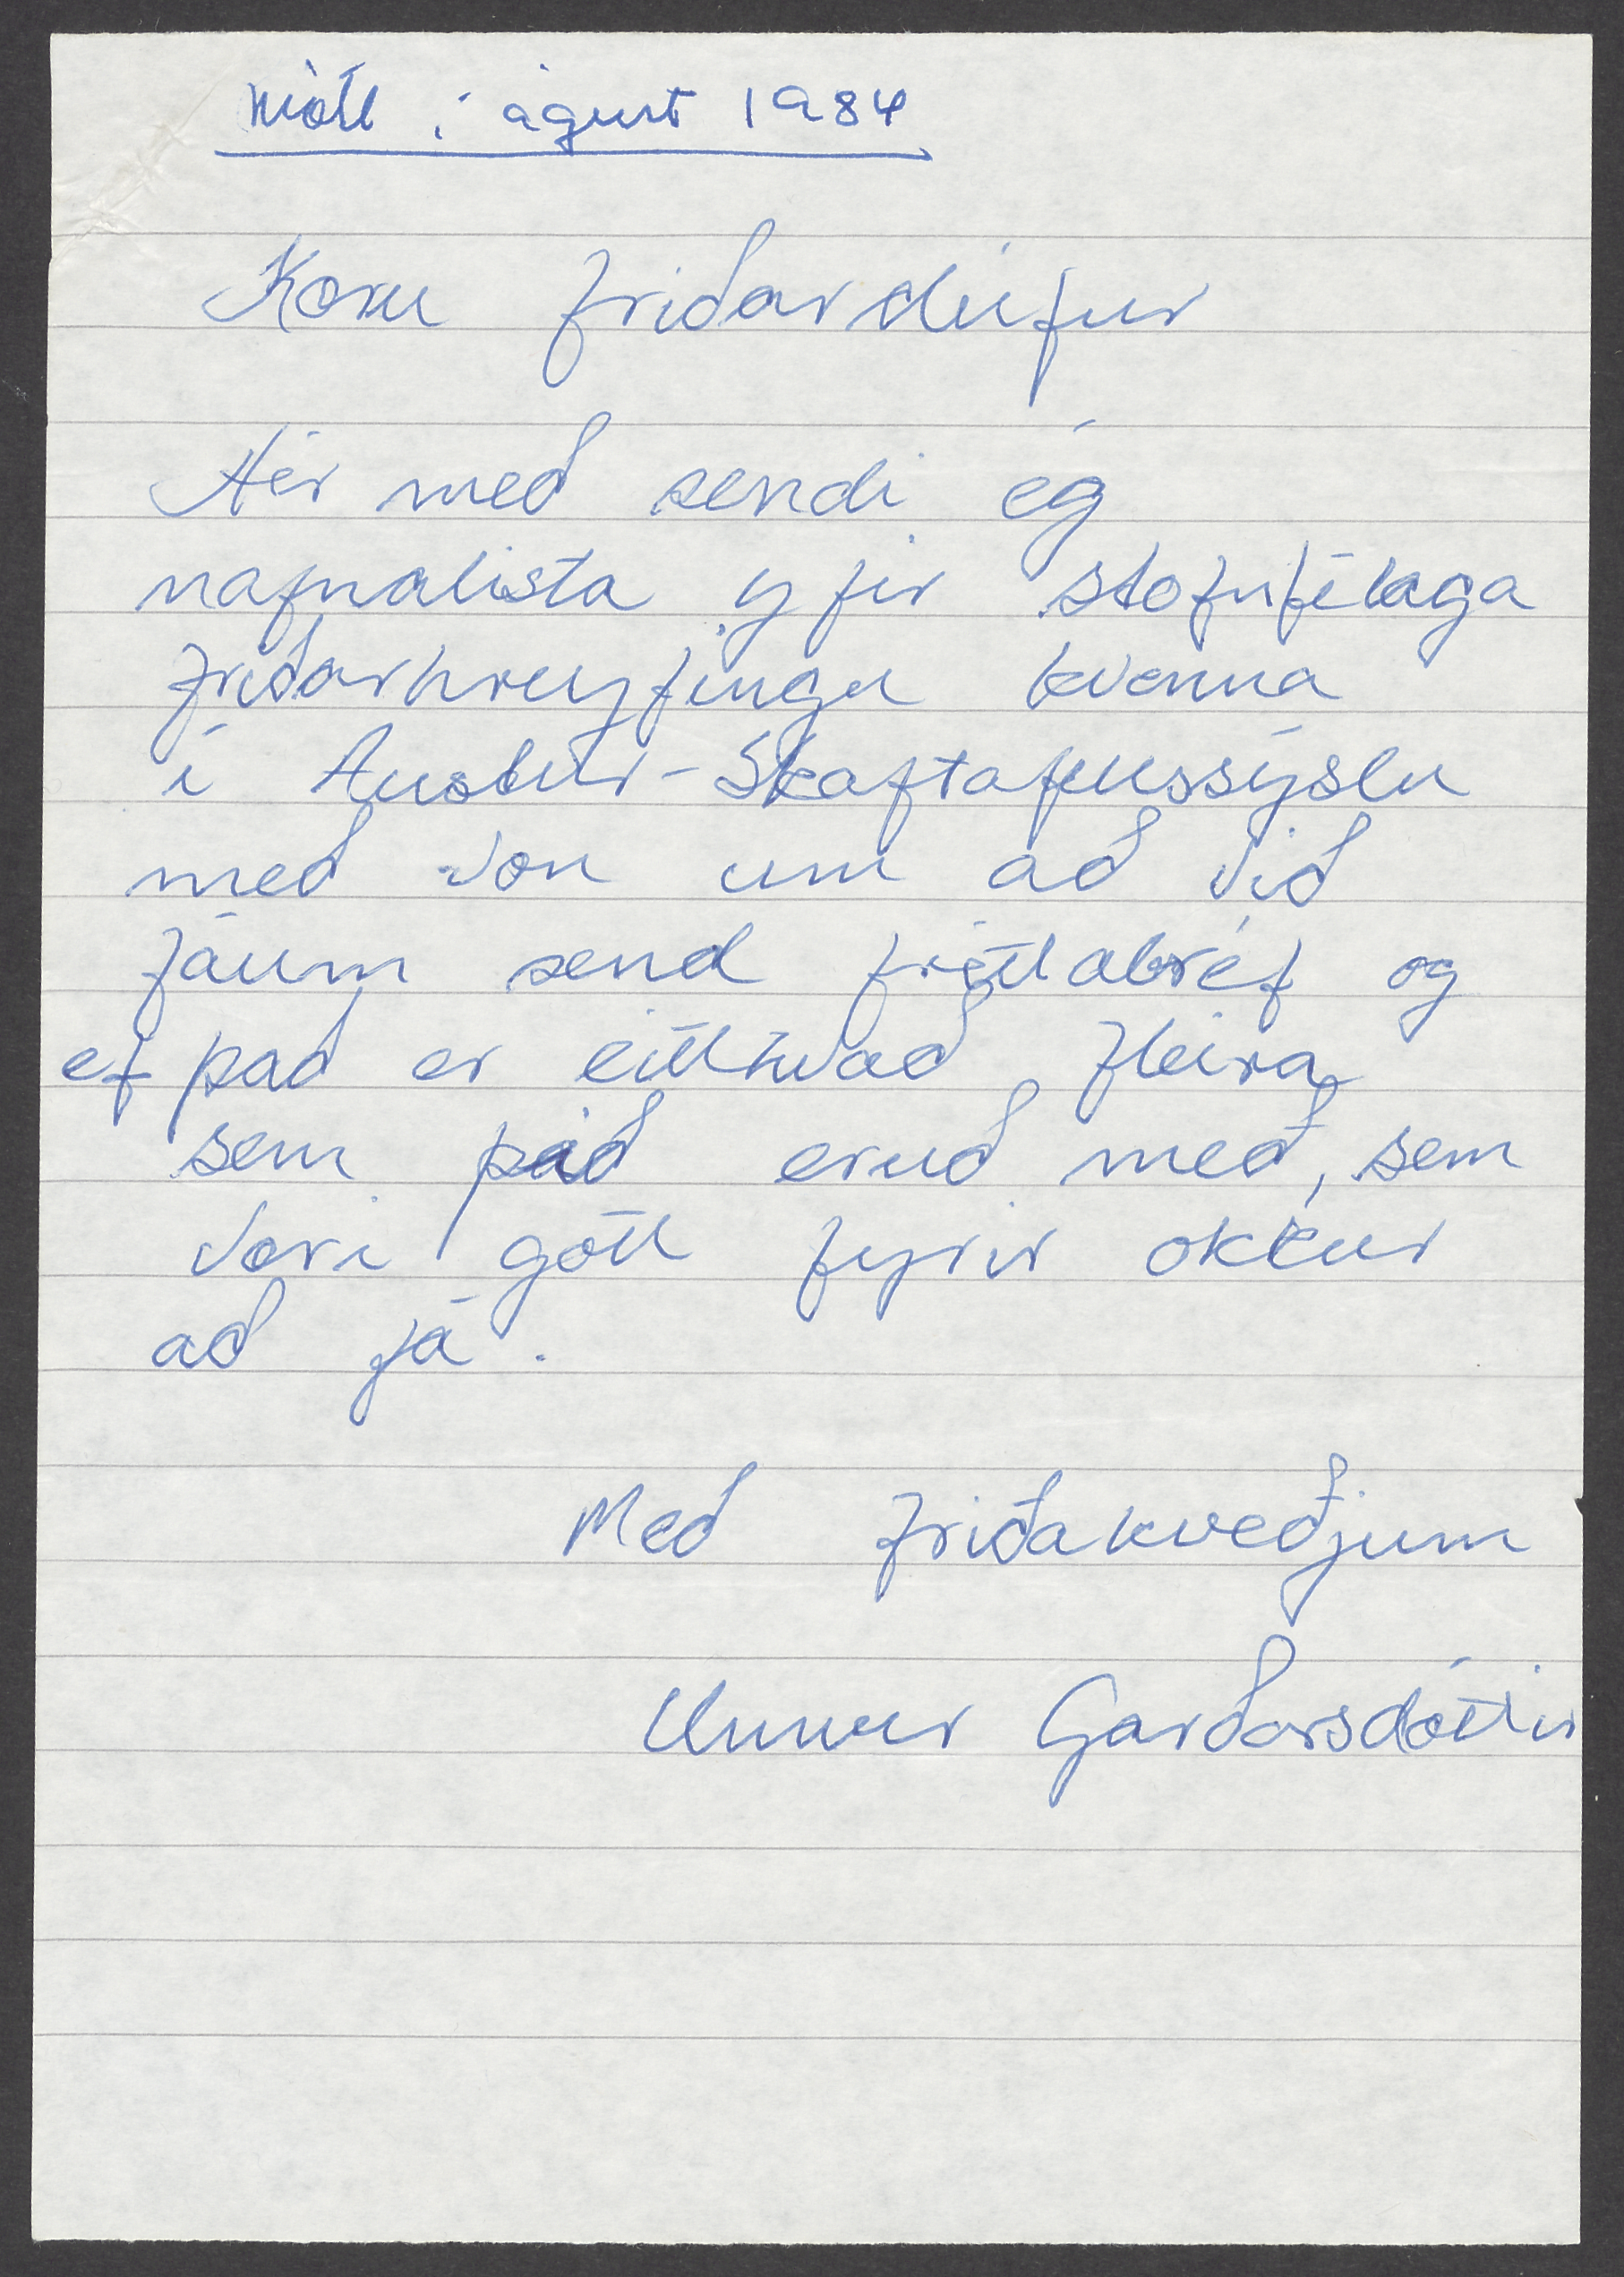 mótt í ágúst 1984
Kæru friðardúfur
Hér með sendi ég
nafnalista yfir stofnfélaga
friðarhreyfingu kvenna
í Austur-Skaftafellssýslu
með von um að við
fáum send fréttabréf og
ef það er eitthvað fleira
sem þið eruð með, sem
væri gott fyrir okkur
að fá.
Með friðakveðjum
Unnur Garðarsdóttir